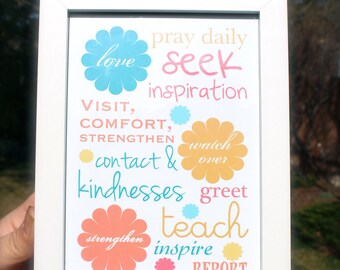 pray daily
love
seek
inspiration
VISIT,
COMFORT,
STRENGTHEN
watch
over
contact &
kindnesses
greet
teach
strengthen
inspire
REPORT